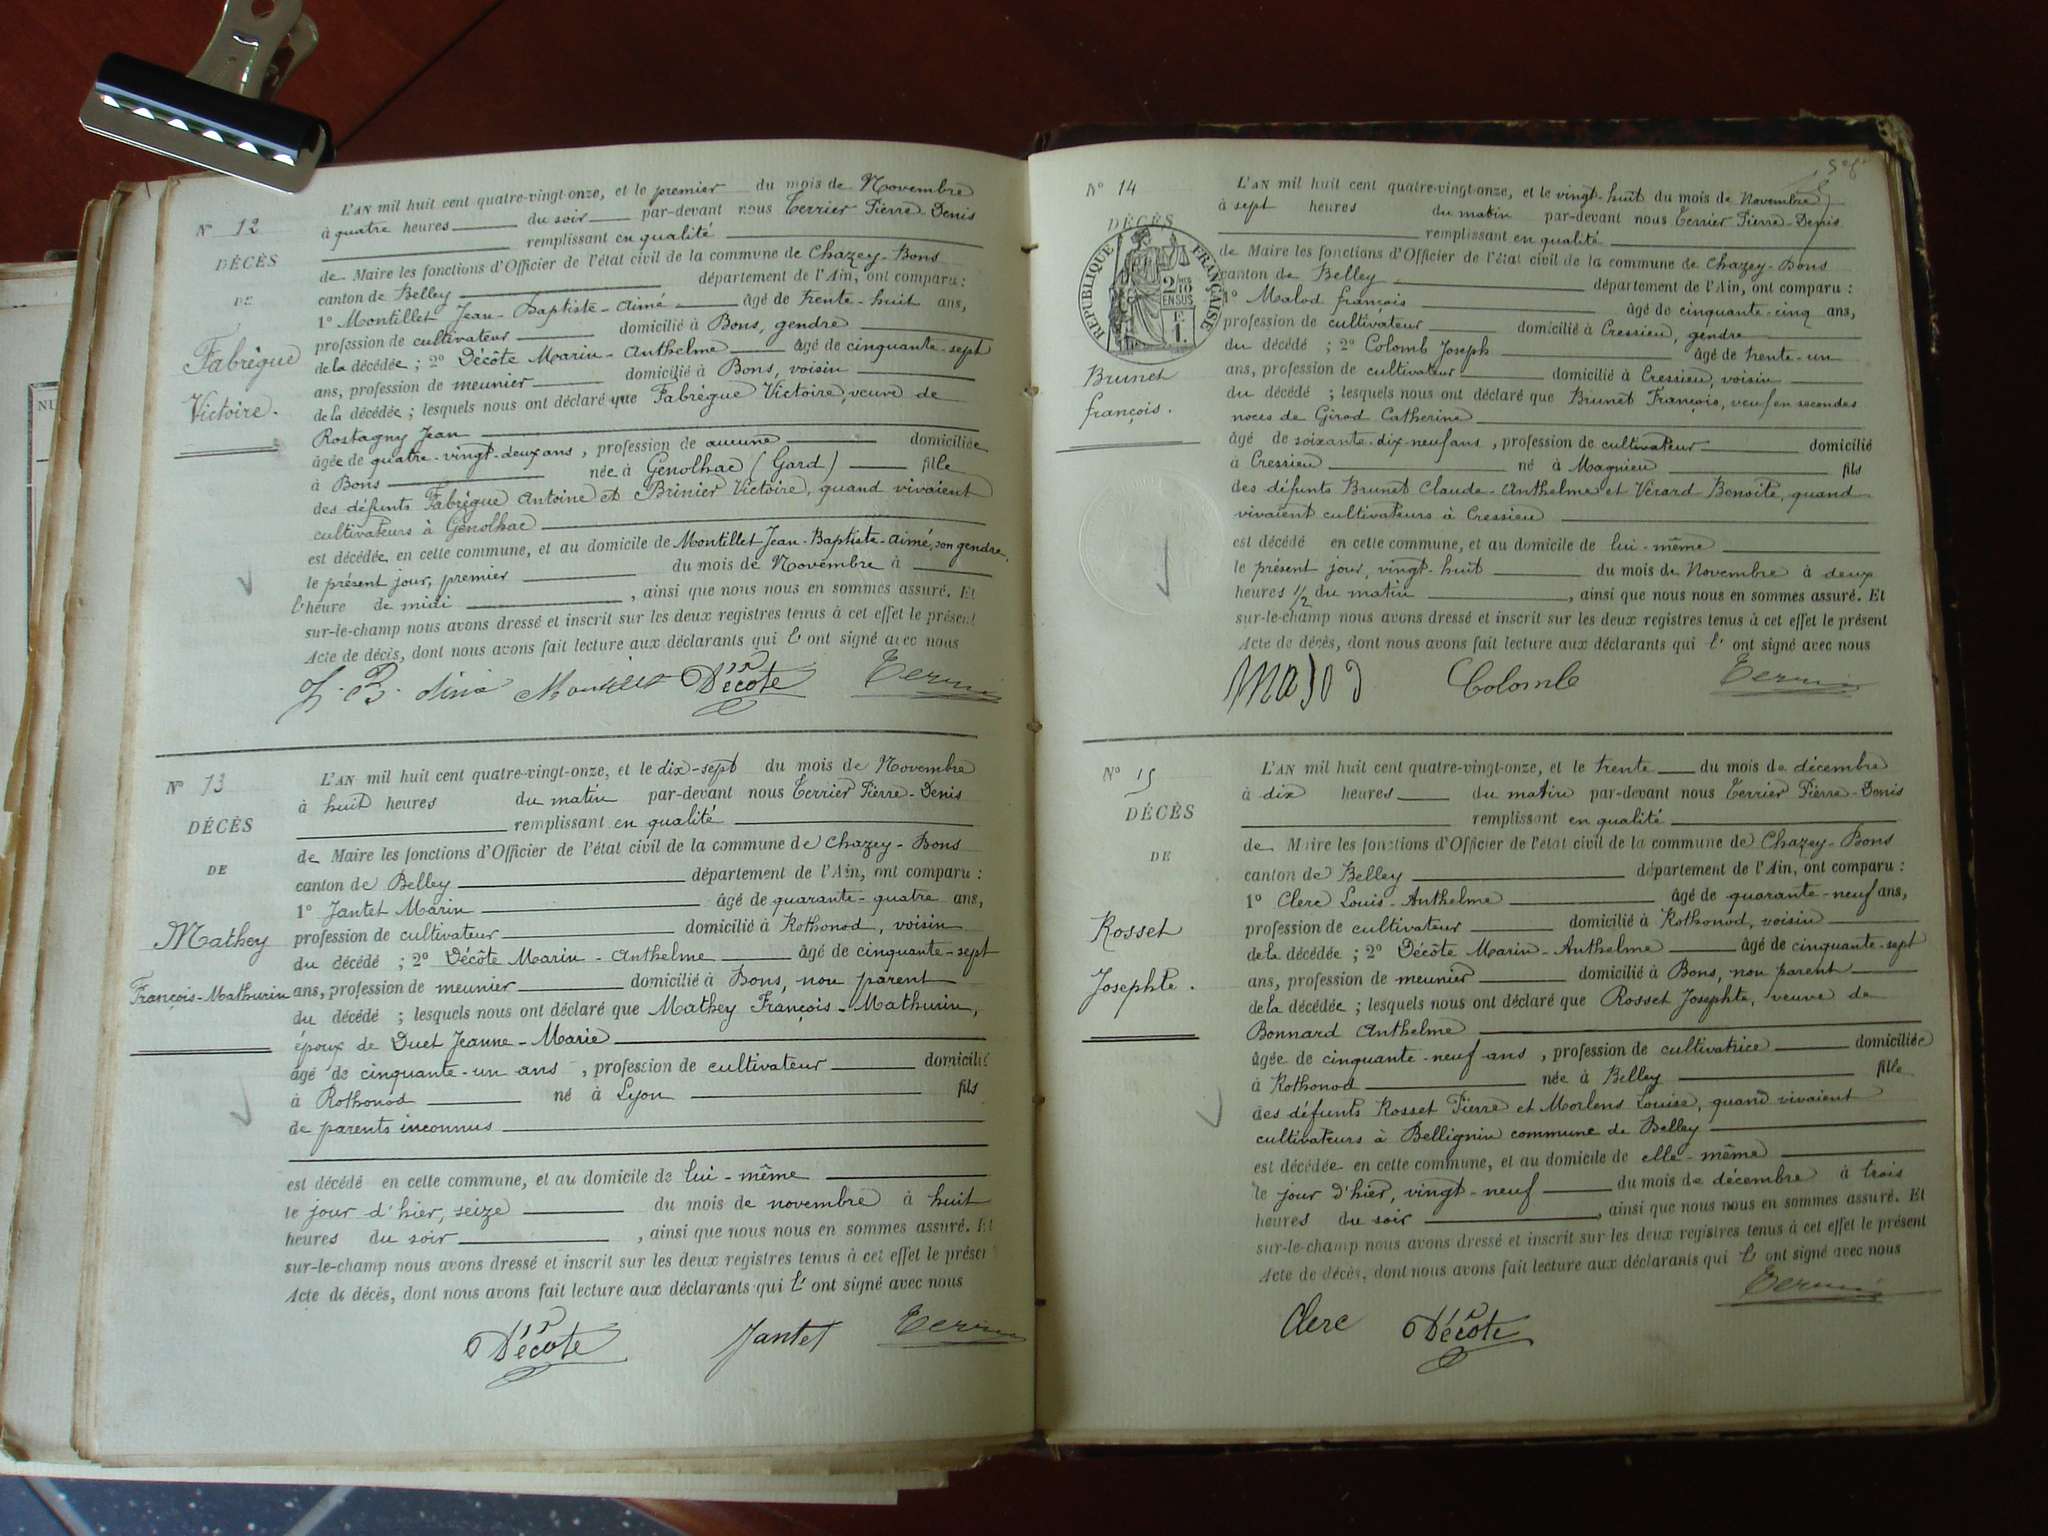 N° 12
DÉCÈS
DE
Fabrègue
Victoire.
L'AN mil huit cent quatre-vingt-onze, et le premier du mois de Novembre
à quatre heures du soir par-devant nous Terrier Pierre-Denis
remplissant en qualité
de Maire les fonctions d'Officier de l'état civil de la commune de Chazey-Bons
canton de Belley département de l'Ain, ont comparu :
1° Montillet Jean-Baptiste-Aimé âgé de trente-huit ans,
profession de cultivateur domicilié à Bons, gendre
de la décédée ; 2° Décôte Marin-Anthelme âgé de cinquante-sept
ans, profession de meunier domicilié à Bons, voisin
de la décédée ; lesquels nous ont déclaré que Fabrègue Victoire, veuve de
Rostagny Jean
âgée de quatre-vingt-deux ans, profession de aucune domiciliée
à Bons née à Genolhac (Gard) fille
des défunts Fabrègue Antoine et Brinier Victoire, quand vivaient
cultivateurs à Génolhac
est décédée en cette commune, et au domicile de Montillet Jean-Baptiste-Aimé, son gendre,
le présent jour, premier du mois de Novembre à
l'heure de midi , ainsi que nous nous en sommes assuré. Et
sur-le-champ nous avons dressé et inscrit sur les deux registres tenus à cet effet le présent
Acte de décès, dont nous avons fait lecture aux déclarants qui l' ont signé avec nous
Décote
N° 13
DÉCÈS
DE
Mathey
François-Mathurin
L'AN mil huit cent quatre-vingt-onze, et le dix-sept du mois de Novembre
à huit heures du matin par-devant nous Terrier Pierre-Denis
remplissant en qualité
de Maire les fonctions d'Officier de l'état civil de la commune de Chazey-Bons
canton de Belley département de l'Ain, ont comparu :
1° Jantet Marin âgé de quarante-quatre ans,
profession de cultivateur domicilié à Rothonod, voisin
du décédé ; 2° Décôte Marin-Anthelme âgé de cinquante-sept
ans, profession de meunier domicilié à Bons, non parent
du décédé ; lesquels nous ont déclaré que Mathey François-Mathurin,
époux de Duet Jeanne-Marie
âgé de cinquante-un ans , profession de cultivateur domicilié
à Rothonod né à Lyon fils
de parents inconnus
est décédé en cette commune, et au domicile de lui-même
le jour d'hier, seize du mois de novembre à huit
heures du soir , ainsi que nous nous en sommes assuré. Et
sur-le-champ nous avons dressé et inscrit sur les deux registres tenus à cet effet le présen
Acte de décès, dont nous avons fait lecture aux déclarants qui l' ont signé avec nous
Décote Jantet
N° 14
DÉCÈS
RÉPUBLIQUE FRANÇAISE
2/10
EN SUS
Brunet
François.
L'AN mil huit cent quatre-vingt-onze, et le vingt-huit du mois de Novembre
à sept heures du matin par-devant nous Terrier Pierre-Denis
remplissant en qualité
de Maire les fonctions d'Officier de l'état civil de la commune de Chazey-Bons
canton de Belley département de l'Ain, ont comparu :
1° Malod François âgé de cinquante-cinq ans,
profession de cultivateur domicilié à Cressieu, gendre
du décédé ; 2° Colomb Joseph âgé de trente-un
ans, profession de cultivateur domicilié à Cressieu, voisin
du décédé ; lesquels nous ont déclaré que Brunet François, veuf en secondes
noces de Girod Catherine
âgé de soixante-dix-neuf ans, profession de cultivateur domicilié
à Cressieu né à Magnieu fils
des défunts Brunet Claude-Anthelme et Vérard Benoite, quand
vivaient cultivateurs à Cressieu
est décédé en cette commune, et au domicile de lui-même
le présent jour, vingt-huit du mois de Novembre à deux
heures 1/2 du matin , ainsi que nous nous en sommes assuré. Et
sur-le-champ nous avons dressé et inscrit sur les deux registres tenus à cet effet le présent
Acte de décès, dont nous avons fait lecture aux déclarants qui l' ont signé avec nous
Malod Colomb
N° 15
DÉCÈS
DE
Rosset
Josephte.
L'AN mil huit cent quatre-vingt-onze, et le trente du mois de décembre
à dix heures du matin par-devant nous Terrier Pierre-Denis
remplissant en qualité
de Maire les fonctions d'Officier de l'état civil de la commune de Chazey-Bons
canton de Belley département de l'Ain, ont comparu :
1° Clerc Louis-Anthelme âgé de quarante-neuf ans,
profession de cultivateur domicilié à Rothonod, voisin
de la décédée ; 2° Décôte Marin-Anthelme âgé de cinquante-sept
ans, profession de meunier domicilié à Bons, non parent
de la décédée ; lesquels nous ont déclaré que Rosset Josephte, veuve de
Bonnard Anthelme
âgée de cinquante-neuf ans , profession de cultivatrice domiciliée
à Rothonod née à Belley fille
des défunts Rosset Pierre et Morlens Louise, quand vivaient
cultivateurs à Bellignin commune de Belley
est décédée en cette commune, et au domicile de elle-même
le jour d'hier, vingt-neuf du mois de décembre à trois
heures du soir , ainsi que nous nous en sommes assuré. Et
sur-le-champ nous avons dressé et inscrit sur les deux registres tenus à cet effet le présent
Acte de décès, dont nous avons fait lecture aux déclarants qui l' ont signé avec nous
Clerc Décôte